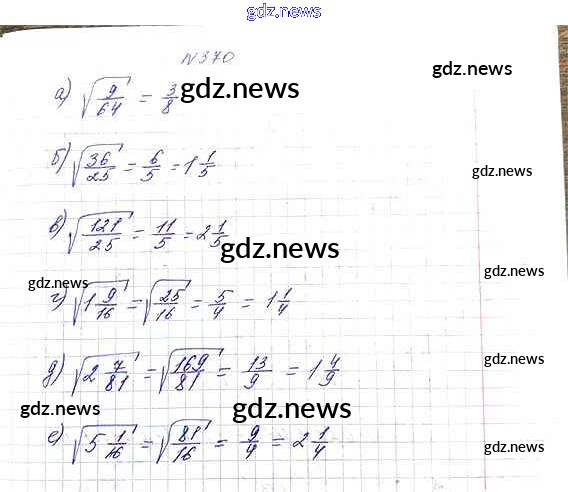 gdz.news
N370
gdz.news
а) √(9/64) = 3/8 gdz.news
б) √(36/25) = 6/5 = 1 1/5
gdz.news
в) √(121/25) = 11/5 = 2 1/5
gdz.news
gdz.news
gdz.news
г) √(1 9/16) = √(25/16) = 5/4 = 1 1/4
gdz.news
д) √(2 7/81) = √(169/81) = 13/9 = 1 4/9
gdz.news
gdz.news
е) √(5 1/16) = √(81/16) = 9/4 = 2 1/4
gdz.news